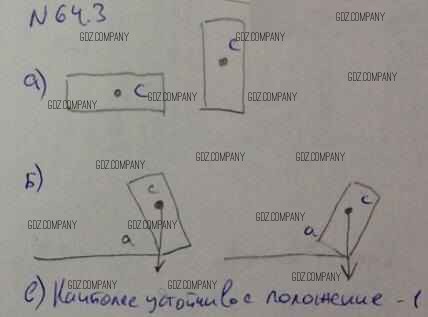 N 64.3
GDZ.COMPANY
GDZ.COMPANY GDZ.COMPANY GDZ.COMPANY
а) С С GDZ.COMPANY
GDZ.COMPANY GDZ.COMPANY GDZ.COMPANY
GDZ.COMPANY GDZ.COMPANY
Б) С С
GDZ.COMPANY а GDZ.COMPANY а GDZ.COMPANY
GDZ.COMPANY GDZ.COMPANY GDZ.COMPANY
с) Наиболее устойчивое положение - 1
GDZ.COMPANY GDZ.COMPANY